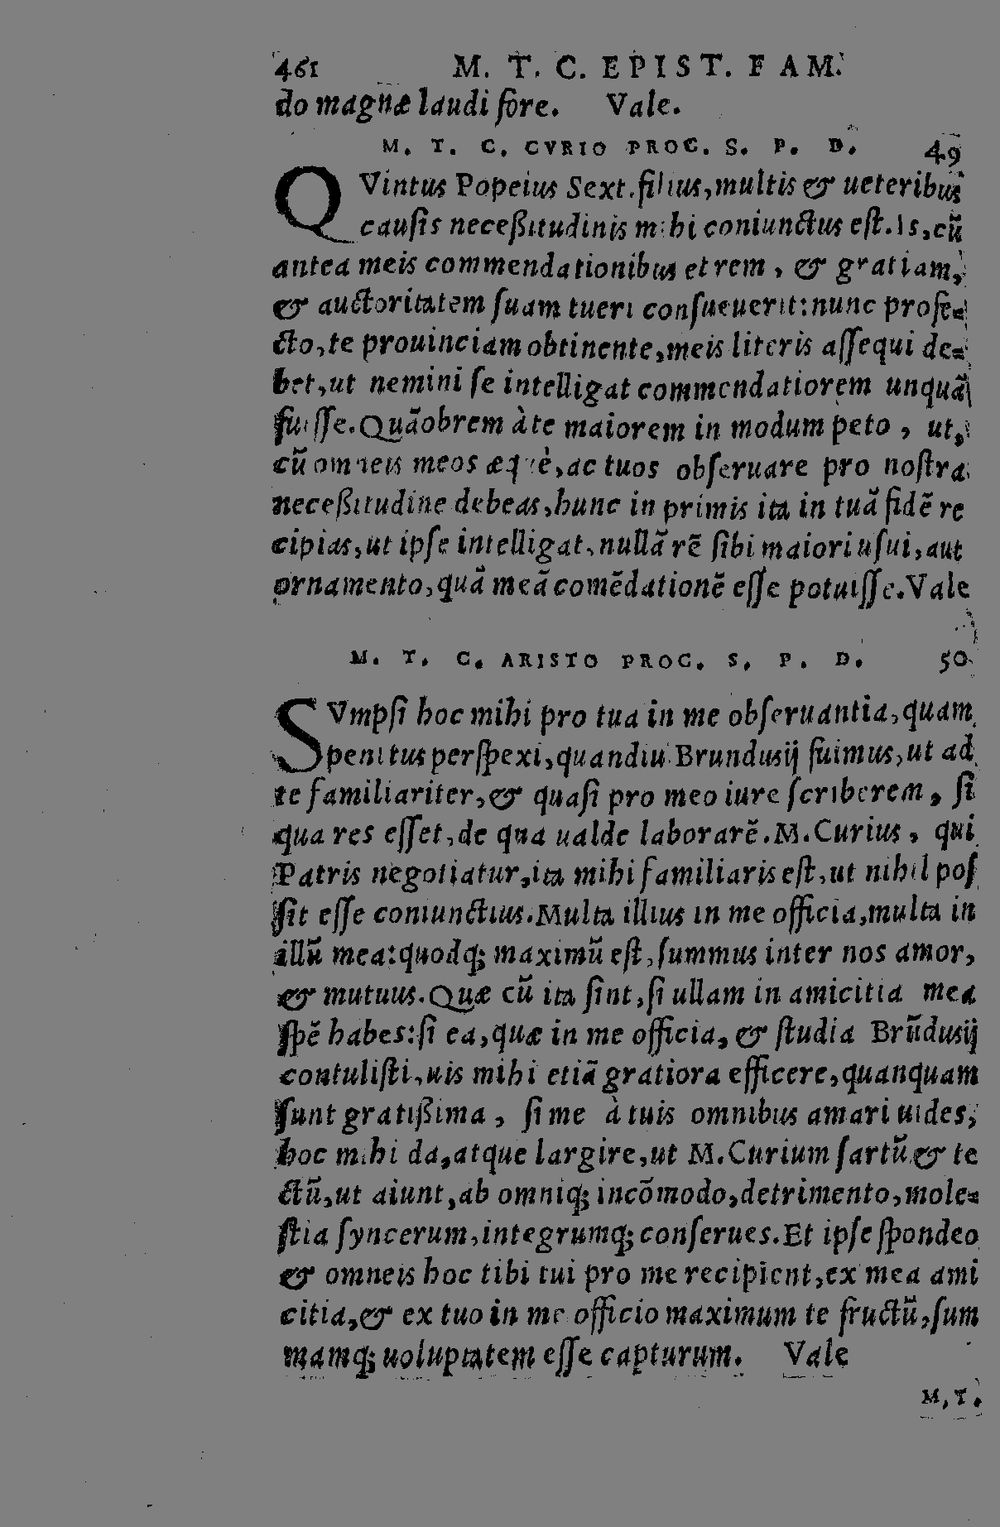 461 M. T. C. EPIST. FAM.
do magnæ laudi fore. Vale.
M. T. C. CVRIO PROC. S. P. D. 49
QVintus Popeius Sext. filius, multis & ueteribus
causis neceßitudinis mihi coniunctus est. Is, cũ
antea meis commendationibus et rem, & gratiam,
& auctoritatem suam tueri consueuerit: nunc profe=
cto, te prouinciam obtinente, meis literis assequi de=
bet, ut nemini se intelligat commendatiorem unquã
fuisse. Quãobrem à te maiorem in modum peto, ut,
cũ omneis meos æquè, ac tuos obseruare pro nostra
neceßitudine debeas, hunc in primis ita in tuã fidẽ re
cipias, ut ipse intelligat, nullã rẽ sibi maiori usui, aut
ornamento, quã meã comẽdationẽ esse potuisse. Vale
M. T. C. ARISTO PROC. S. P. D. 50
SVmpsi hoc mihi pro tua in me obseruantia, quam
penitus perspexi, quandiu Brundusij fuimus, ut ad
te familiariter, & quasi pro meo iure scriberem, si
qua res esset, de qua ualde laborarẽ. M. Curius, qui
Patris negotiatur, ita mihi familiaris est, ut nihil pos
sit esse coniunctius. Multa illius in me officia, multa in
illũ mea: quodq; maximũ est, summus inter nos amor,
& mutuus. Quæ cũ ita sint, si ullam in amicitia mea
spẽ habes: si ea, quæ in me officia, & studia Brũdusij
contulisti, uis mihi etiã gratiora efficere, quanquam
sunt gratißima, si me à tuis omnibus amari uides,
hoc mihi da, atque largire, ut M. Curium sartũ & te
ctũ, ut aiunt, ab omniq; incõmodo, detrimento, mole=
stia syncerum, integrumq; conserues. Et ipse spondeo
& omneis hoc tibi tui pro me recipient, ex mea ami
citia, & ex tuo in me officio maximum te fructũ, sum
mamq; uoluptatem esse capturum. Vale
M. T.